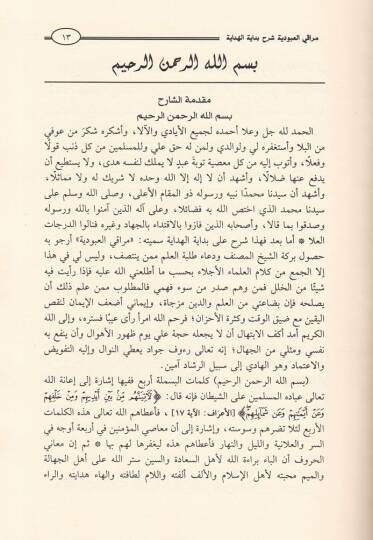 مراقي العبودية شرح بداية الهداية
١٣
بسم الله الرحمن الرحيم
مقدمة الشارح
بسم الله الرحمن الرحيم
الحمد لله جل وعلا أحمده لجميع الأيادي والآلا، وأشكره شكرَ من عوفي
من البلا وأستغفره لي ولوالدي ولمن له حق علي وللمسلمين من كل ذنب قولًا
وفعلًا، وأتوب إليه من كل معصية توبةَ عبدٍ لا يملك لنفسه هدى، ولا يستطيع أن
يدفع عنها ضلالًا، وأشهد أن لا إله إلا الله وحده لا شريك له ولا مماثلًا،
وأشهد أن سيدنا محمدًا نبيه ورسوله ذو المقام الأعلى، وصلى الله وسلم على
سيدنا محمد الذي اختص الله به فضائلا، وعلى آله الذين آمنوا بالله ورسوله
وصدقوا بما قالا، وأصحابه الذين فازوا بالاقتداء بالجهاد وغيره فنالوا الدرجات
العلا * أما بعد فهذا شرح على بداية الهداية سميته: «مراقي العبودية» أرجو به
حصول بركة الشيخ المصنف ودعاء طلبة العلم ممن ينتصف، وليس لي في هذا
إلا الجمع من كلام العلماء الأجلاء بحسب ما أطلعني الله عليه فإذا رأيت فيه
شيئًا من الخلل فمن وهم صدر من سوء فهمي فالمطلوب ممن علم ذلك أن
يصلحه فإن بضاعتي من العلم والدين مزجاة، وإيماني أضعف الإيمان لنقص
اليقين مع ضيق الوقت وكثرة الأحزان؛ فرحم الله امرأ رأى عيبًا فستره، وإلى الله
الكريم أمد أكف الابتهال أن لا يجعله حجة علي يوم ظهور الأهوال وأن ينفع به
نفسي ومثلي من الجهال؛ إنه تعالى رءوف جواد يعطي النوال وإليه التفويض
والاعتماد وهو الهادي إلى سبيل الرشاد آمين.
(بسم الله الرحمن الرحيم) كلمات البسملة أربع ففيها إشارة إلى إعانة الله
تعالى عباده المسلمين على الشيطان فإنه قال: ﴿لَآتِيَنَّهُمْ مِنْ بَيْنِ أَيْدِيهِمْ وَمِنْ خَلْفِهِمْ
وَعَنْ أَيْمَٰنِهِمْ وَعَنْ شَمَآئِلِهِمْ﴾ [الأعراف: الآية ١٧]، فأعطاهم الله تعالى هذه الكلمات
الأربع لئلا تضرهم وسوسته، وإشارة إلى أن معاصي المؤمنين في أربعة أوجه في
السر والعلانية والليل والنهار فأعطاهم هذه ليغفرها لهم بها * ثم إن معاني
الحروف أن الباء براءة الله لأهل السعادة والسين ستر الله على أهل الجهالة
والميم محبته لأهل الإسلام والألف ألفته واللام لطافته والهاء هدايته والراء